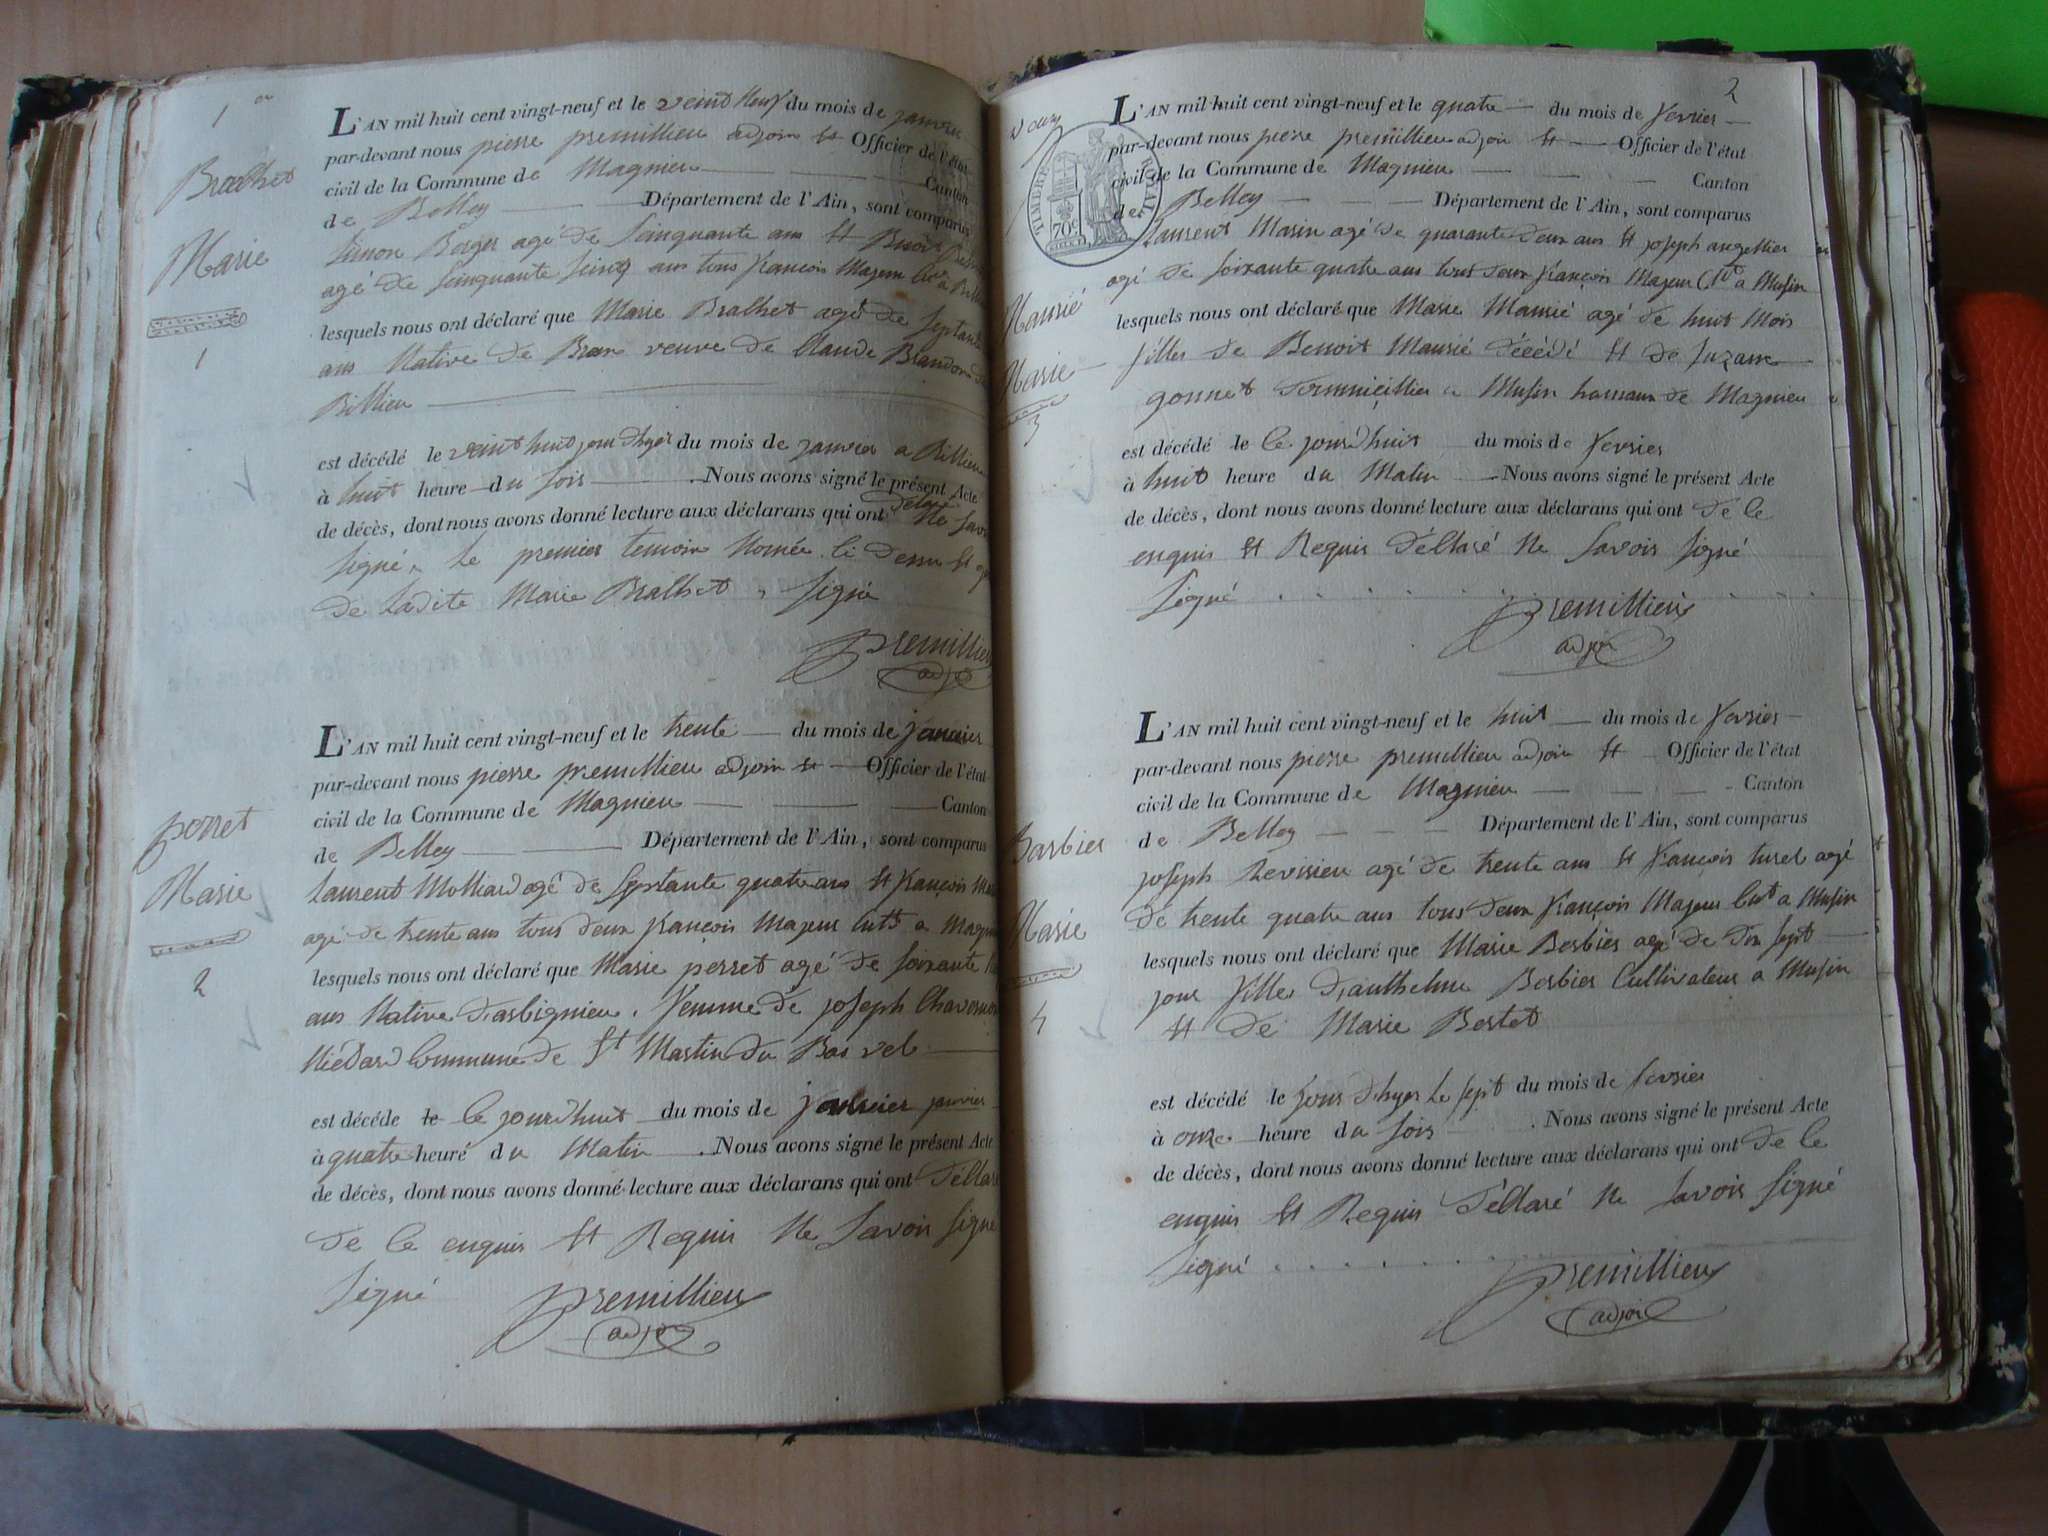 1er
Bralhet
Marie
1
L'AN mil huit cent vingt-neuf et le veint neuf du mois de janvier
par-devant nous pierre premillieu adjoin et Officier de l'état
civil de la Commune de Magnieu Canton
de Belley Département de l'Ain, sont comparus
Simon Berger agé de Sinquante ans et Benoit
agé de Sinquante Seinq ans tous françois Majeur
lesquels nous ont déclaré que Marie Bralhet agé de Septante
ans Native de veuve de Claude Brandon de
Billieu
est décédé le veint huit jour d'hyer du mois de janvier a Billieu
à huit heure du soir Nous avons signé le présent Acte
de décès, dont nous avons donné lecture aux déclarans qui ont déclaré Ne Savoir
Signé, Le premier temoin Nomée Ci dessu et
de Ladite Marie Bralhet, Signé
premillieu
adjoi
perret
Marie
2
L'AN mil huit cent vingt-neuf et le trente du mois de janvier
par-devant nous pierre premillieu adjoin et Officier de l'état
civil de la Commune de Magnieu Canton
de Belley Département de l'Ain, sont comparus
Laurent Molliard agé de Septante quatre ans et françois
agé de trente ans tous deux françois Majeur Cult a Magnieu
lesquels nous ont déclaré que Marie perret agé de Soixante
ans Native d'arbignieu, femme de joseph
Commune de St Martin du Bas vel
est décédé le Ce jourd'huit du mois de janvier janvier
à quatre heure du Matin Nous avons signé le présent Acte
de décès, dont nous avons donné lecture aux déclarans qui ont déllaré
de Ce enquis et Requis Ne Savoir Signé
Signé
premillieu
adjoi
2
Deux
TIMBRE ROYAL
70c
Maurié
Marie
3
L'AN mil huit cent vingt-neuf et le quatre du mois de fevrier
par-devant nous pierre premillieu adjoin et Officier de l'état
civil de la Commune de Magnieu Canton
de Belley Département de l'Ain, sont comparus
Laurent Marin agé de quarante deux ans et joseph angellier
agé de soixante quatre ans tous deux françois Majeur Clt a Musin
lesquels nous ont déclaré que Marie Maurié agé de huit Mois
filles de Benoit Maurié décédé et de Suzane
gonnet dommicillier a Musin hamaux de Magnieu
est décédé le Ce jourd'huit du mois de fevrier
à huit heure du Matin Nous avons signé le présent Acte
de décès, dont nous avons donné lecture aux déclarans qui ont de Ce
enquis et Requis déllaré Ne Savoir Signé
Signé
premillieu
adjoi
Barbier
Marie
4
L'AN mil huit cent vingt-neuf et le huit du mois de fevrier
par-devant nous pierre premillieu adjoin et Officier de l'état
civil de la Commune de Magnieu Canton
de Belley Département de l'Ain, sont comparus
joseph Revirieu agé de trente ans et françois turel agé
de trente quatre ans tous deux françois Majeur Cult a Musin
lesquels nous ont déclaré que Marie Berbier agé de dix sept
jour filles d'anthelme Berbier Cultivateur a Musin
et de Marie Bertet
est décédé le jour d'hyer Le sept du mois de fevrier
à onze heure du soir Nous avons signé le présent Acte
de décès, dont nous avons donné lecture aux déclarans qui ont de Ce
enquis et Requis déllaré Ne Savoir Signé
Signé
premillieu
adjoi